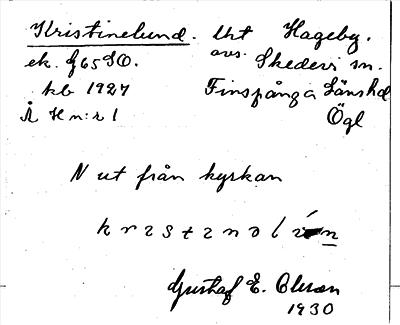 Kristinelund. Utt Hageby.
ek. J65SO. avs. Skedevi sn.
kb 1927 Finspånga Länshd
Å H n:r 1 Ögl
N ut från kyrkan
Gustaf E. Olsson
1930